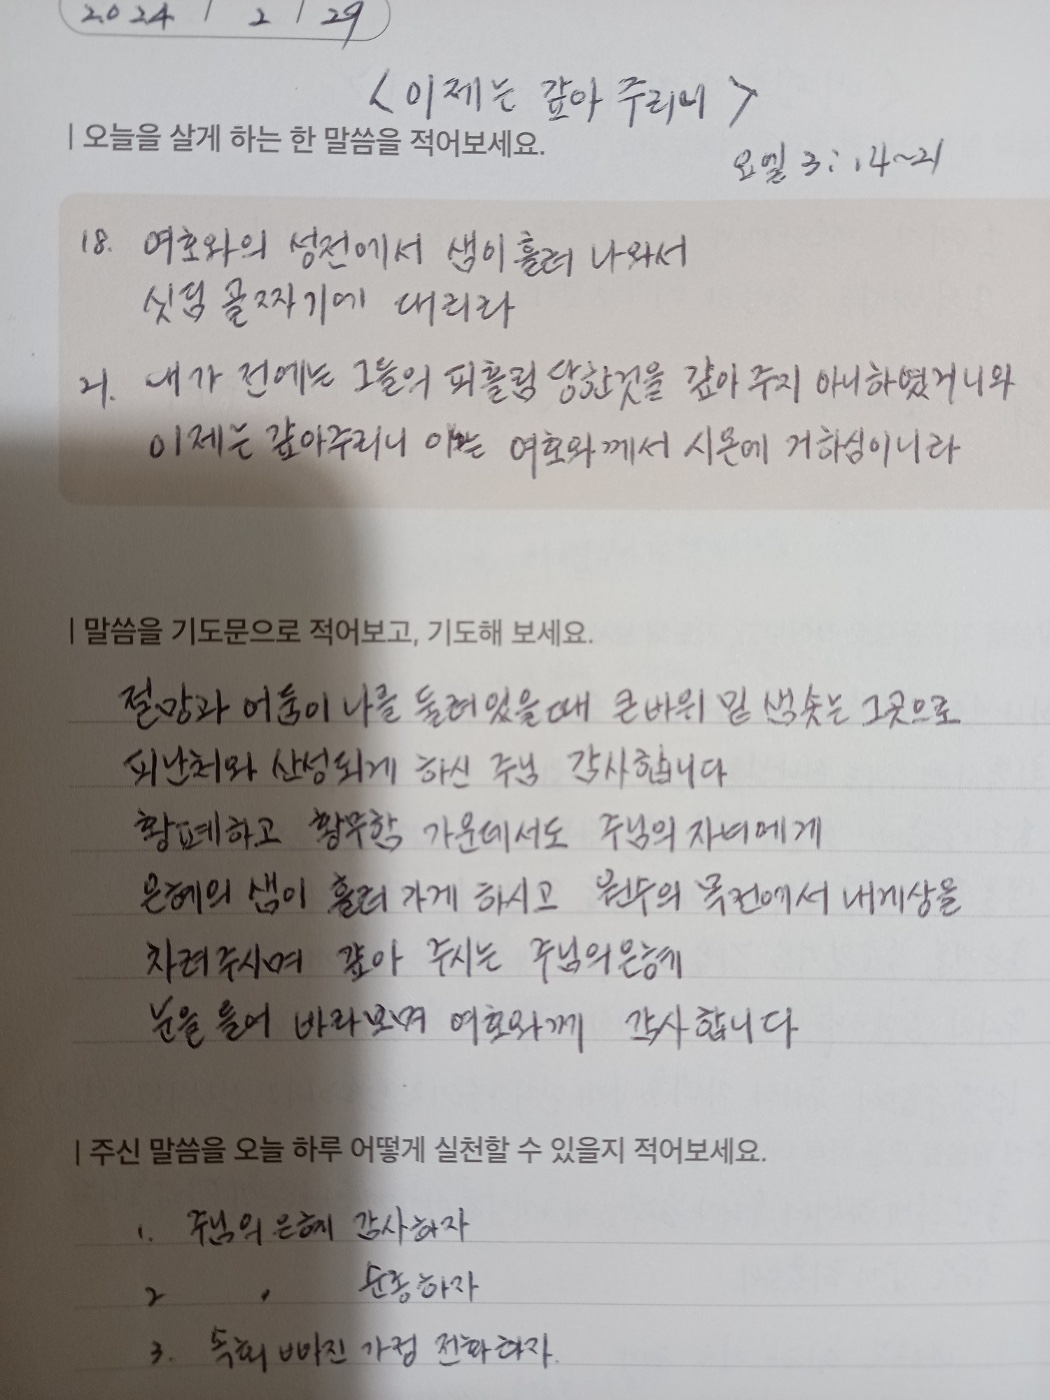 2024 / 2 / 29
<이제는 갚아 주리니>
| 오늘을 살게 하는 한 말씀을 적어보세요.
요엘 3:14~21
18. 여호와의 성전에서 샘이 흘러 나와서
싯딤 골짜기에 대리라
21. 내가 전에는 그들의 피흘림 당한것을 갚아 주지 아니하였거니와
이제는 갚아주리니 이는 여호와께서 시온에 거하심이니라
| 말씀을 기도문으로 적어보고, 기도해 보세요.
절망과 어둠이 나를 둘려있을때 큰바위 밑 샘솟는 그곳으로
피난처와 산성되게 하신 주님 감사합니다
황폐하고 황무함 가운데서도 주님의 자녀에게
은혜의 샘이 흘러 가게 하시고 원수의 목전에서 내게상을
차려주시며 갚아 주시는 주님의은혜
눈을 들어 바라보며 여호와께 감사합니다
| 주신 말씀을 오늘 하루 어떻게 실천할 수 있을지 적어보세요.
1. 주님의 은혜 감사하자
2 , 순종하자
3. 속회 빠진 가정 전화하자.